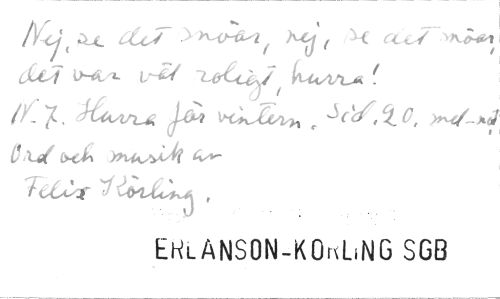 Nej, se det snöar, nej, se det snöar,
det var väl roligt, hurra!
N. 7. Hurra för vintern. Sid. 20. mel-
Ord och musik av
Felix Körling.
ERLANSON-KÖRLING SGB